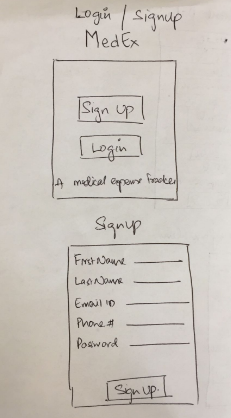 Login / Signup
MedEx
Sign Up
Login
A medical expense tracker
Signup
First Name
Last Name
Email ID
Phone #
Password
Sign Up